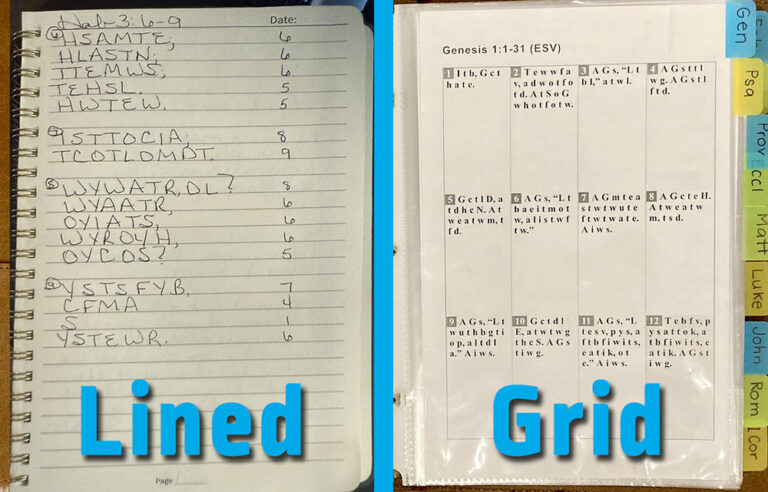 Hab 3:6-9
Date:
6 HSAMTE; 6
HLASTN; 6
TTEMWS; 6
TEHSL. 5
HWTEW. 5
7 ISTTOCIA; 8
TCOTLOMDT. 9
8 WYWATR, OL? 8
WYAATR, 6
OYIATS, 6
WYROYH, 6
OYCOS? 5
9 YSTSFYB, 7
CFMA 4
S 1
YSTEWR. 6
Page
Lined
Genesis 1:1-31 (ESV)
1 I t b, G c t
h a t e.
2 T e w w f a
v, a d w o t f o
t d. A t S o G
w h o t f o t w.
3 A G s, “L t
b l,” a t w l.
4 A G s t t l
w g. A G s t l
f t d.
5 G c t l D, a
t d h c N. A t
w e a t w m, t
f d.
6 A G s, “L t
b a e i t m o t
w, a l i s t w f
t w.”
7 A G m t e a
s t w t w u t e
f t w t w a t e.
A i w s.
8 A G c t e H.
A t w e a t w
m, t s d.
9 A G s, “L t
w u t h b g t i
o p, a l t d l
a.” A i w s.
10 G c t d l
E, a t w t w g
t h c S. A G s
t i w g.
11 A G s, “L
t e s v, p y s, a
f t b f i w i t s,
e a t i k, o t
e.” A i w s.
12 T e b f v, p
y s a t t o k, a
t b f i w i t s, e
a t i k. A G s t
i w g.
Gen
Psa
Prov
Eccl
Matt
Luke
John
Rom
1 Cor
Grid